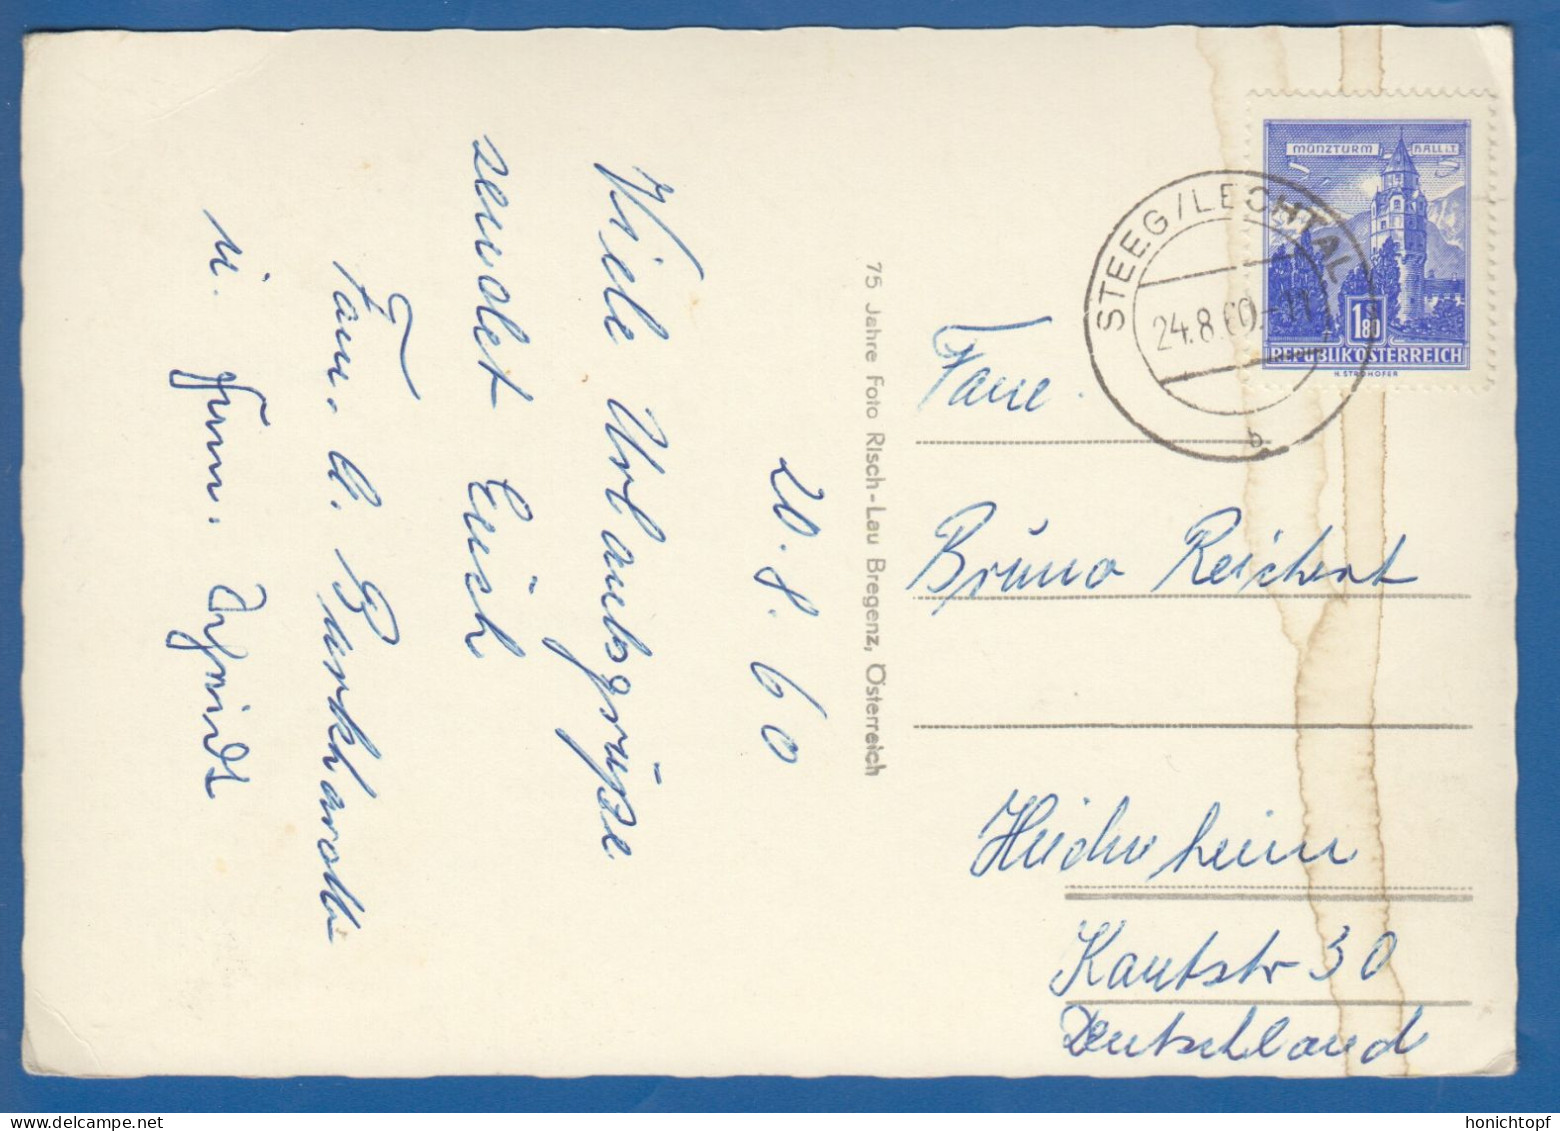 20.8.60
Viele Urlaubsgrüße
sendet Euch
Fam. A. Burkhardt
u. Fam.
75 Jahre Foto Risch-Lau Bregenz, Österreich
MÜNZTURM HALL i.T.
1.80
REPUBLIK ÖSTERREICH
H. STROHOFER
STEEG/LECHTAL
24.8.60.-11
b
Fam.
Bruno Reichert
Heidenheim
Kantstr 30
Deutschland
honichtopf